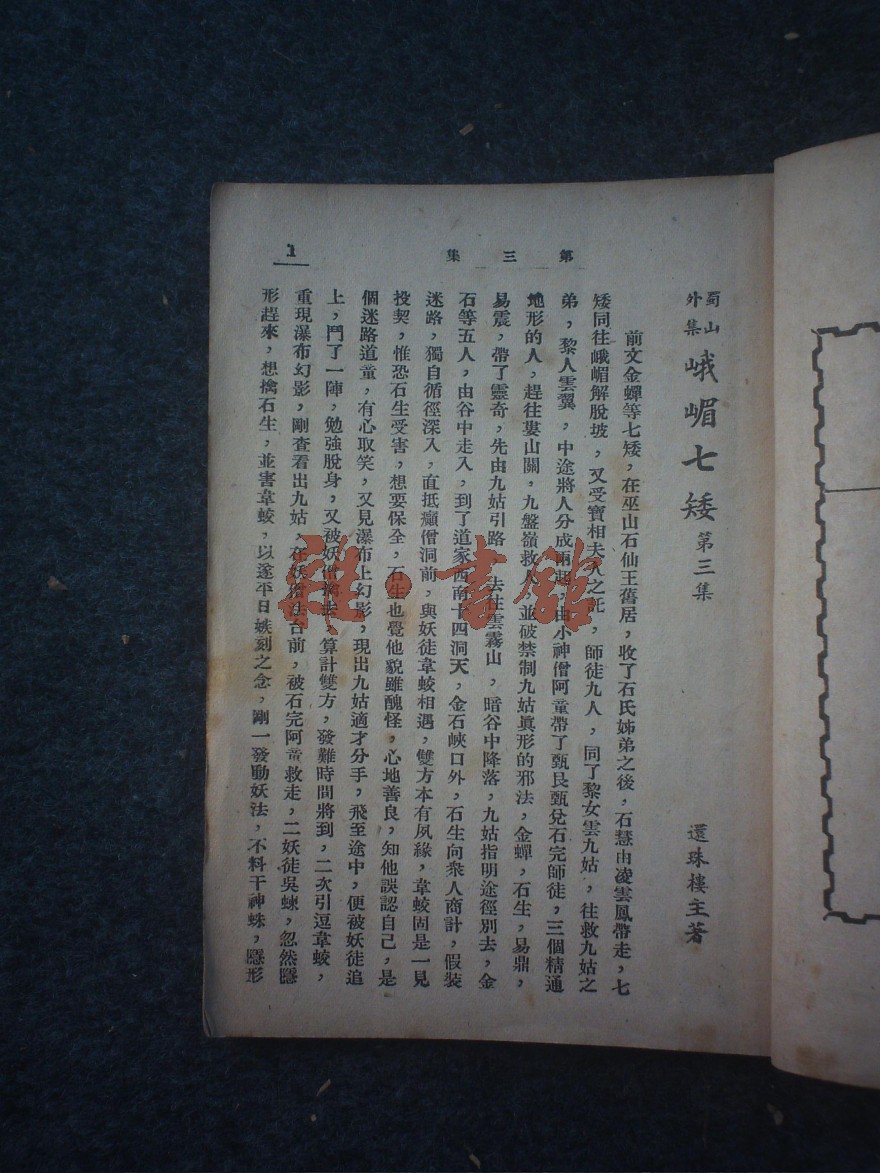 蜀山外集 峨嵋七矮 第三集
還珠樓主著
前文金蟬等七矮，在巫山石仙王舊居，收了石氏姊弟之後，石慧由凌雲鳳帶走，七
矮同往峨嵋解脫坡，又受寶相夫人之託，師徒九人，同了黎女雲九姑，往救九姑之
弟，黎人雲翼，中途將人分成兩起，由小神僧阿童帶了甄艮甄兌石完師徒，三個精通
地形的人，趕往婁山關，九盤嶺救人，並破禁制九姑眞形的邪法，金蟬，石生，易鼎，
易震，帶了靈奇，先由九姑引路，去往雲霧山，暗谷中降落，九姑指明途徑別去，金
石等五人，由谷中走入，到了道家西南十四洞天，金石峽口外，石生向衆人商計，假裝
迷路，獨自循徑深入，直抵癲僧洞前，與妖徒韋蛟相遇，雙方本有夙緣，韋蛟固是一見
投契，惟恐石生受害，想要保全，石生也覺他貌雖醜怪，心地善良，知他誤認自己，是
個迷路道童，有心取笑，又見瀑布上幻影，現出九姑適才分手，飛至途中，便被妖徒追
上，鬥了一陣，勉強脫身，又被妖僧擒去，算計雙方，發難時間將到，二次引逗韋蛟，
重現瀑布幻影，剛查看出九姑，在妖僧法台前，被石完阿童救走，二妖徒吳蝀，忽然隱
形趕來，想擒石生，並害韋蛟，以遂平日嫉刻之念，剛一發動妖法，不料干神蛛，隱形
第三集
1
雜·書館